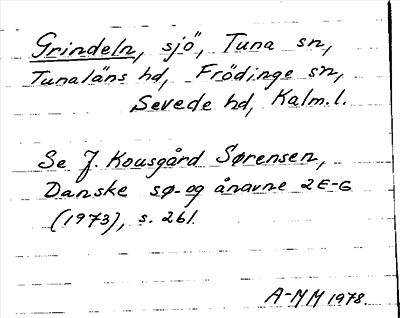 Grindeln, sjö, Tuna sn,
Tunaläns hd, Frödinge sn,
Sevede hd, Kalm.l.
Se J. Kousgård Sørensen,
Danske sø- og ånavne 2E-G
(1973), s. 261.
A-MM 1978.